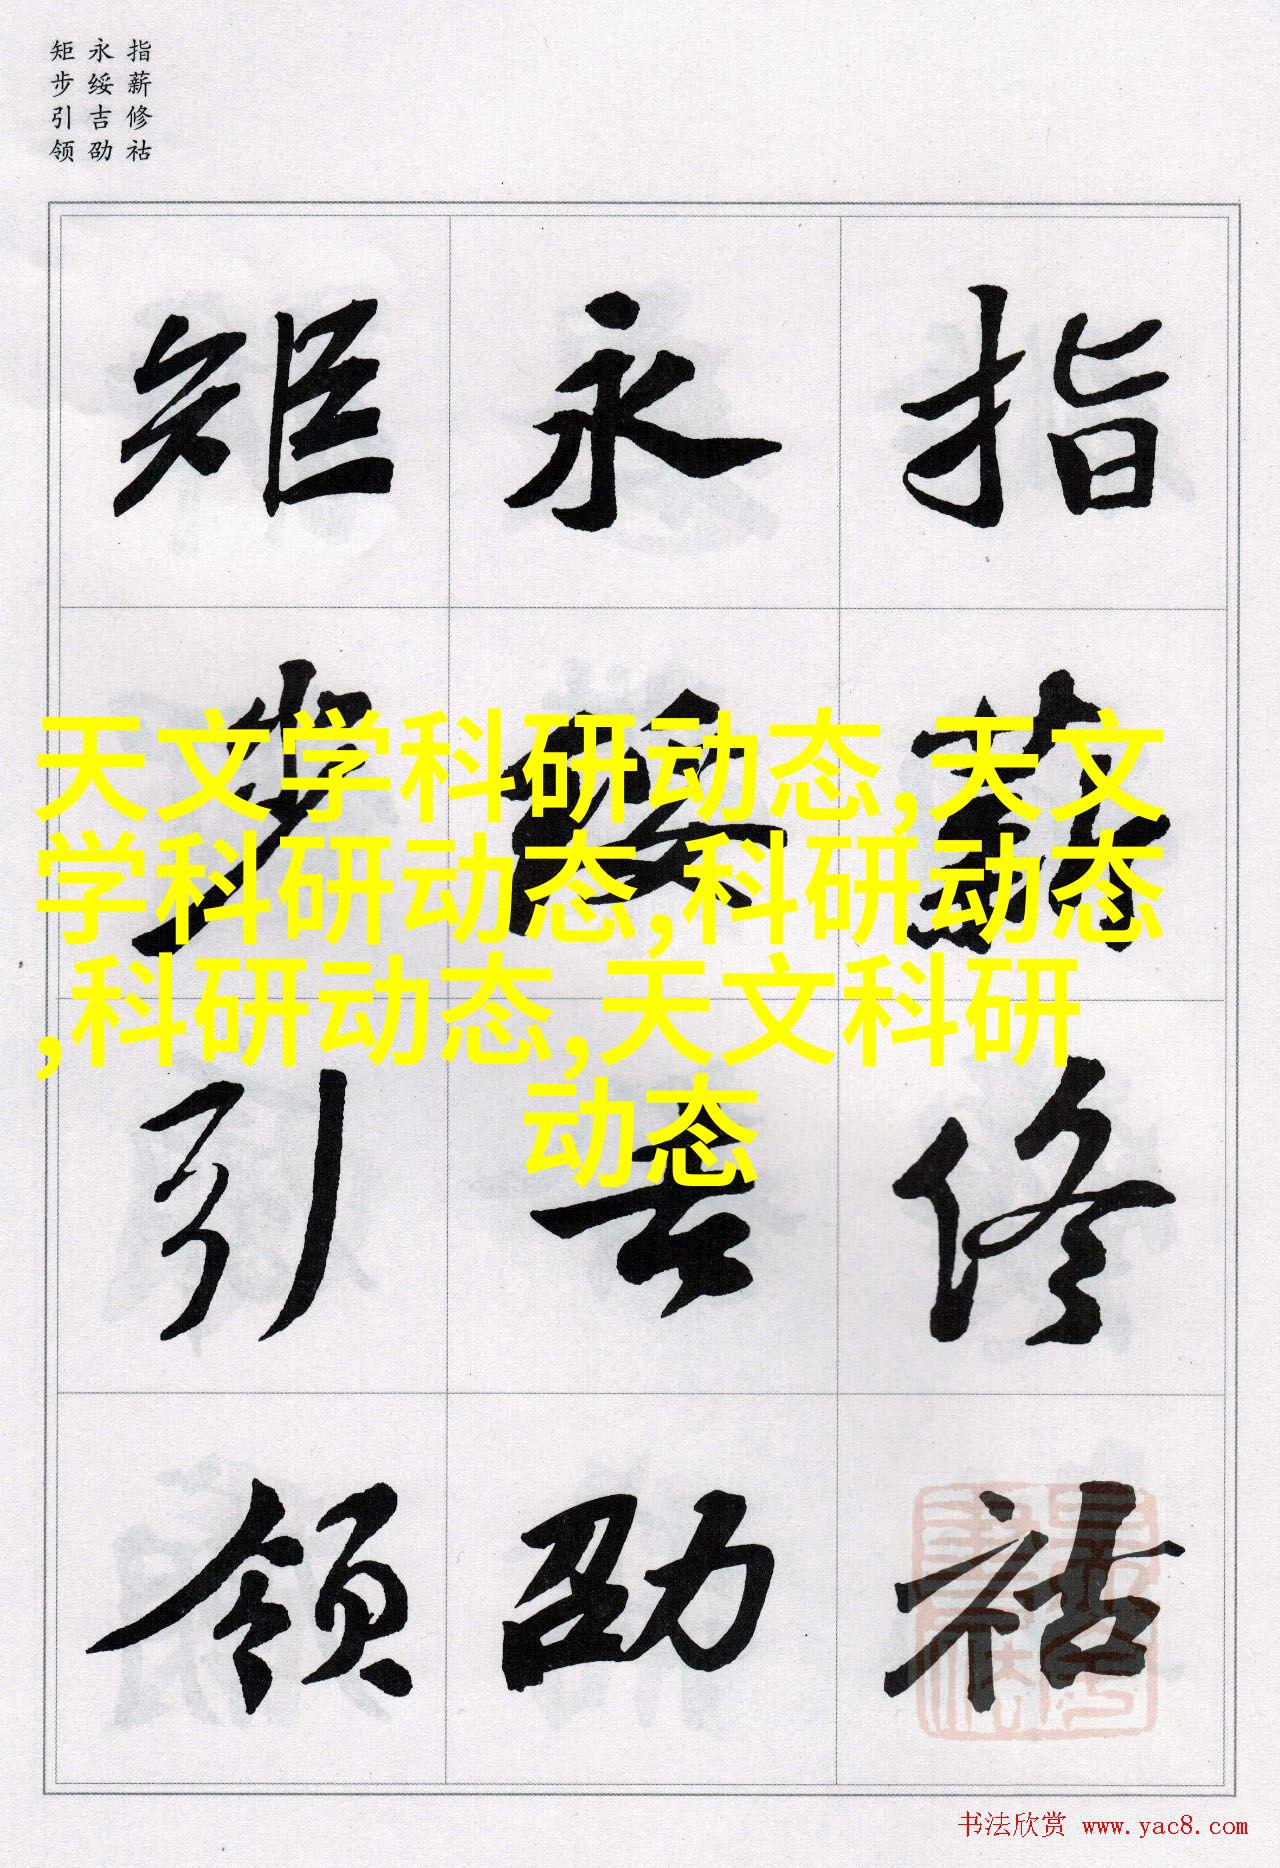 指薪修祜
永绥吉劭
矩步引领
指薪修祜
永绥吉劭
矩步引领
天文学科研动态,天文
学科研动态,科研动态
,科研动态,天文科研
动态
书法欣赏 www.yac8.com